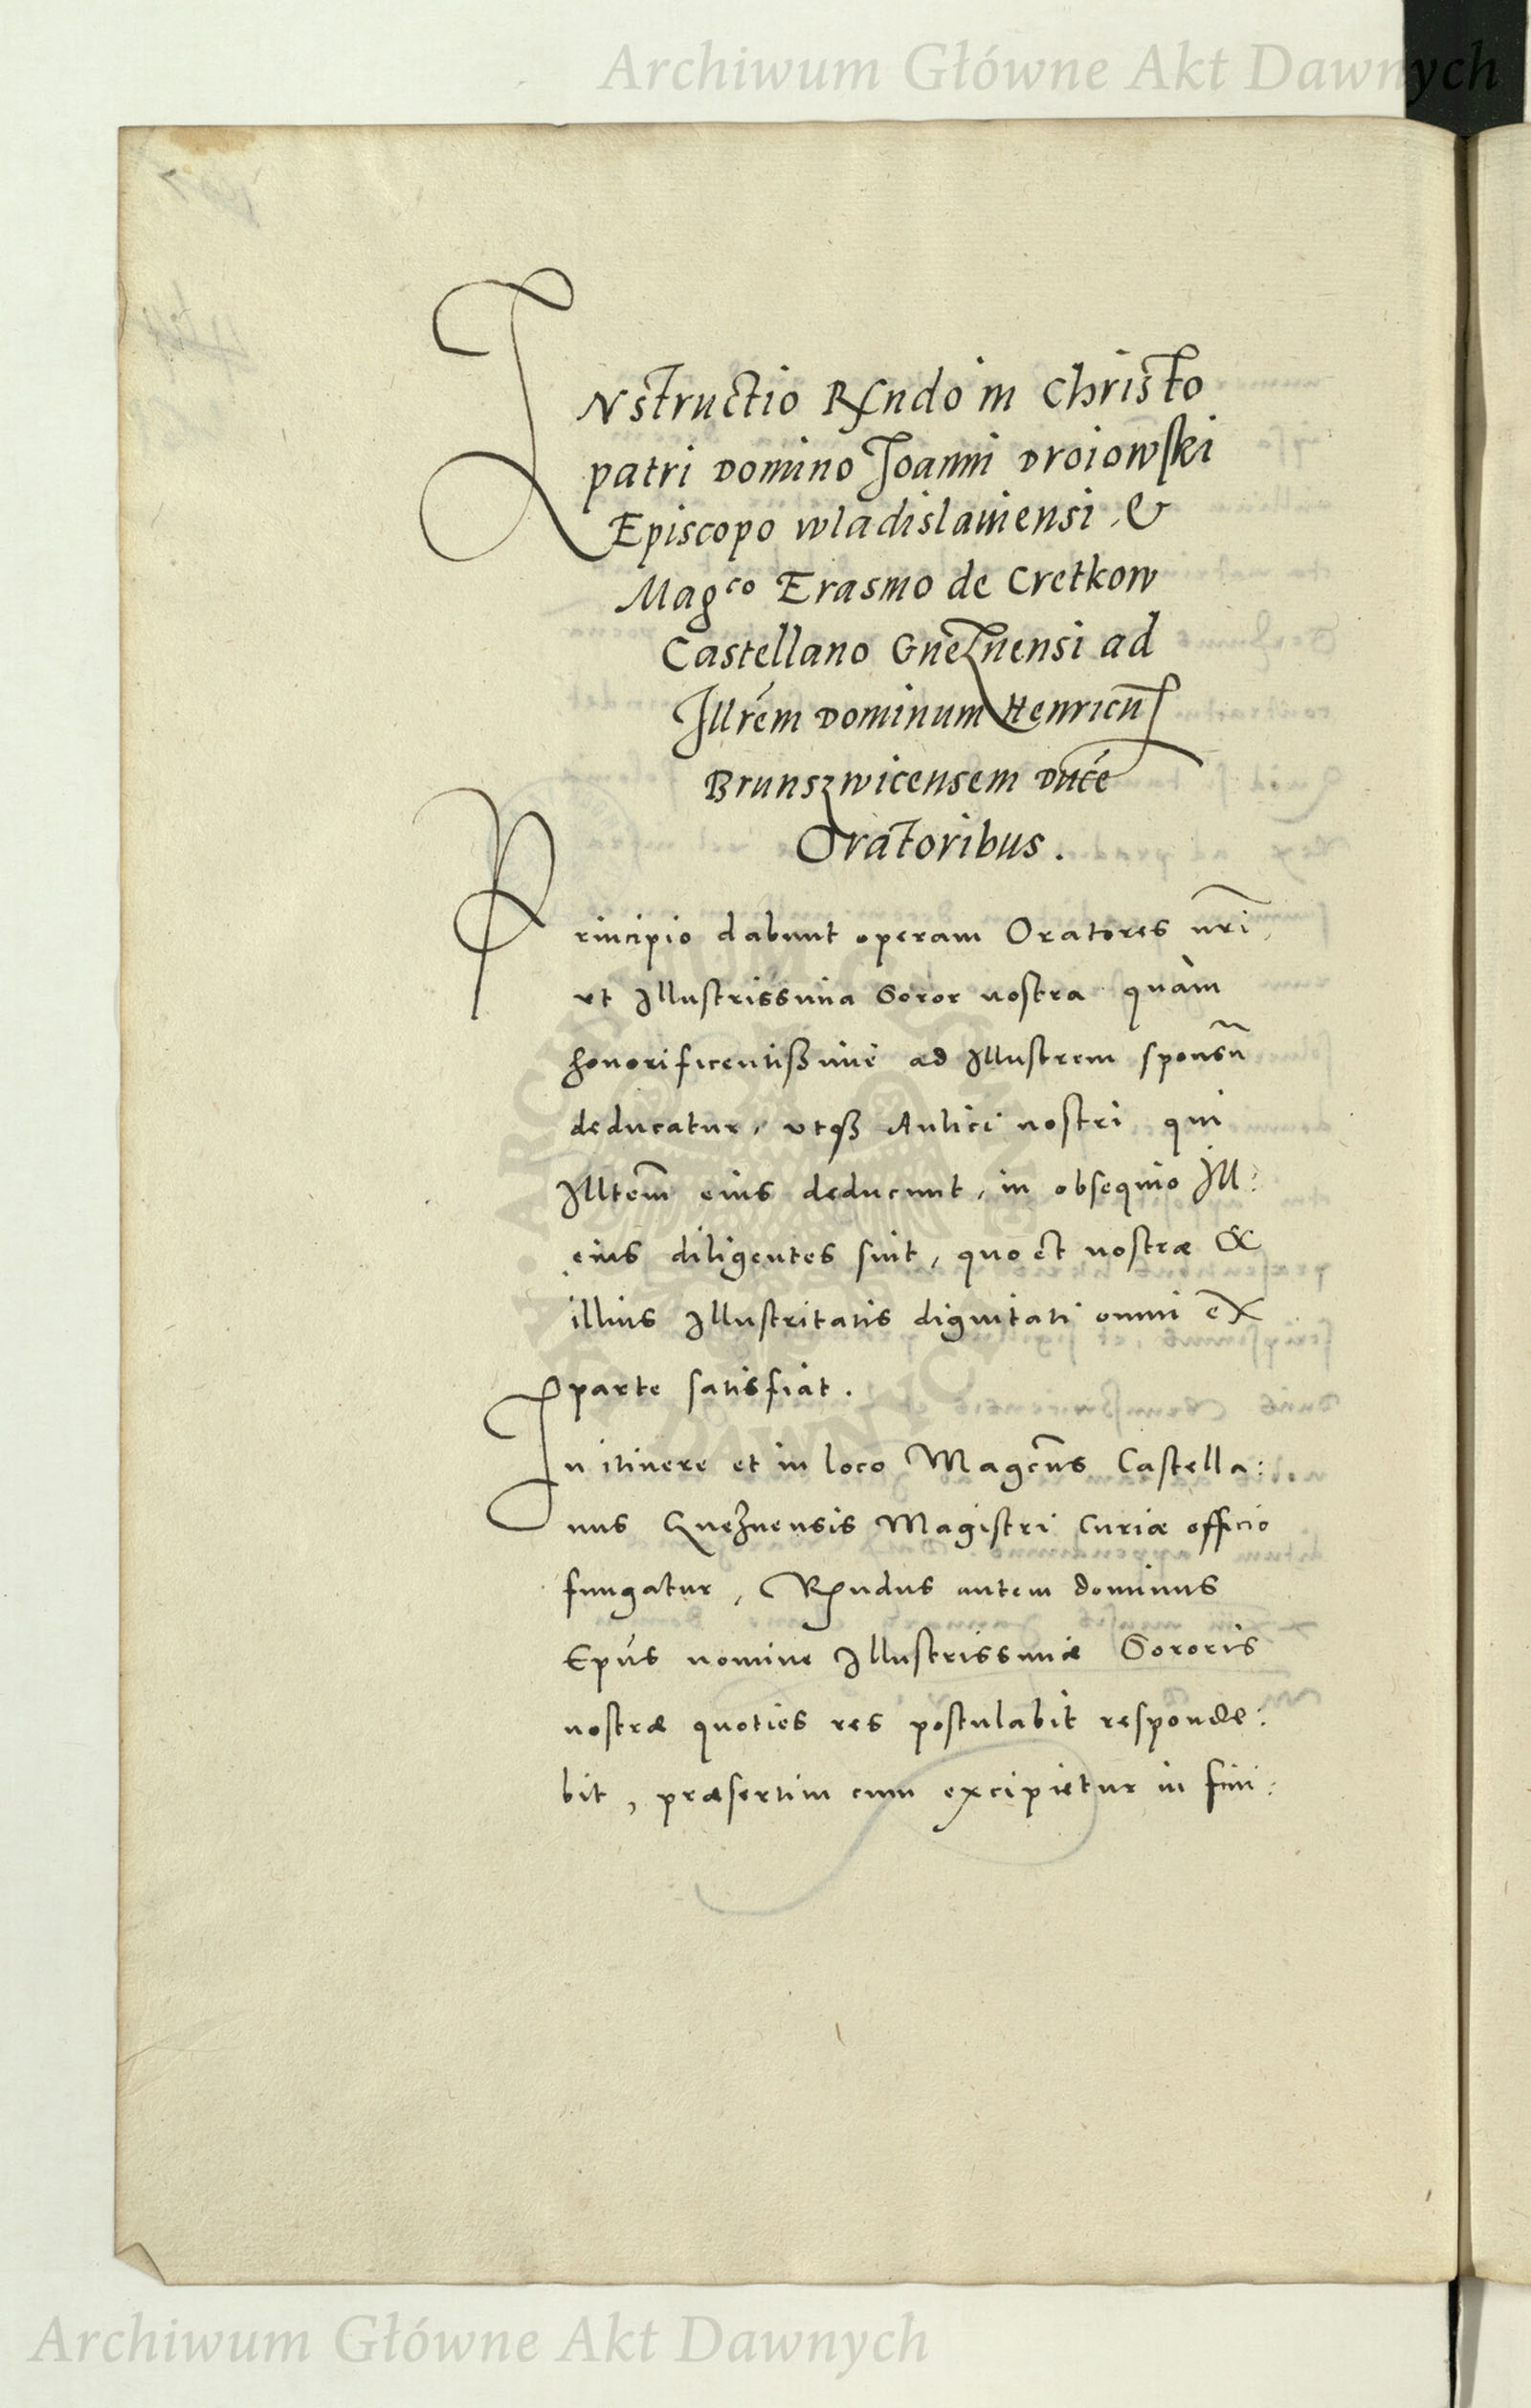 Archiwum Główne Akt Dawnych
INstructio Rndo in Christo
patri Domino Joanni Droiowski
Episcopo Wladislaviensi, &
Magco Erasmo de Cretkow
Castellano Gneznensi ad
Illrem Dominum Henricū
Brunszwicensem Ducē
Oratoribus.
Principio dabunt operam Oratores nri,
vt Illustrissima Soror nostra quàm
honorificentissime ad Illustrem sponsū
deducatur, vtqȝ Aulici nostri qui
Illtem̄ eius deducunt, in obsequio Ill:
eius diligentes sint, quo et nostræ &
illius Illustritatis dignitati omni ex
parte satisfiat.
In itinere et in loco Magcus Castella:
nus Gneznensis Magistri Curiæ officio
fungatur, Rndus autem dominus
Epus nomine Illustrissimæ Sororis
nostræ quoties res postulabit responde:
bit, præsertim cum excipietur in fini:
Archiwum Główne Akt Dawnych